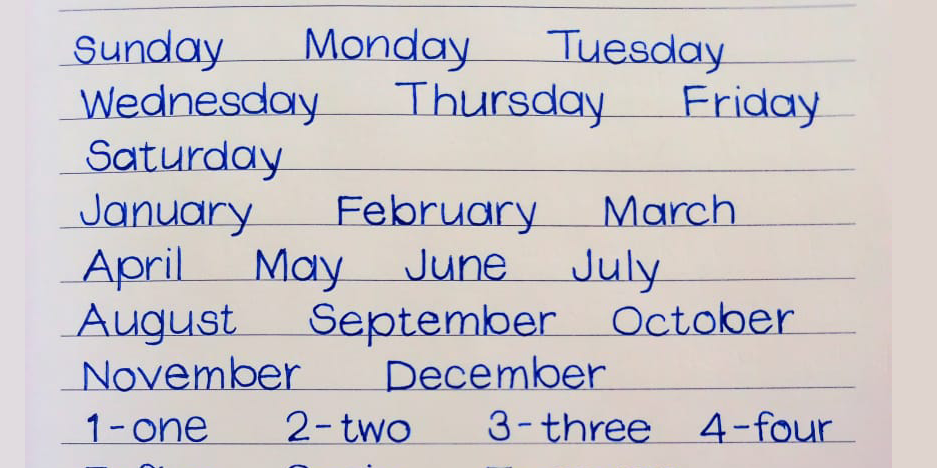 Sunday Monday Tuesday
Wednesday Thursday Friday
Saturday
January February March
April May June July
August September October
November December
1-one 2-two 3-three 4-four